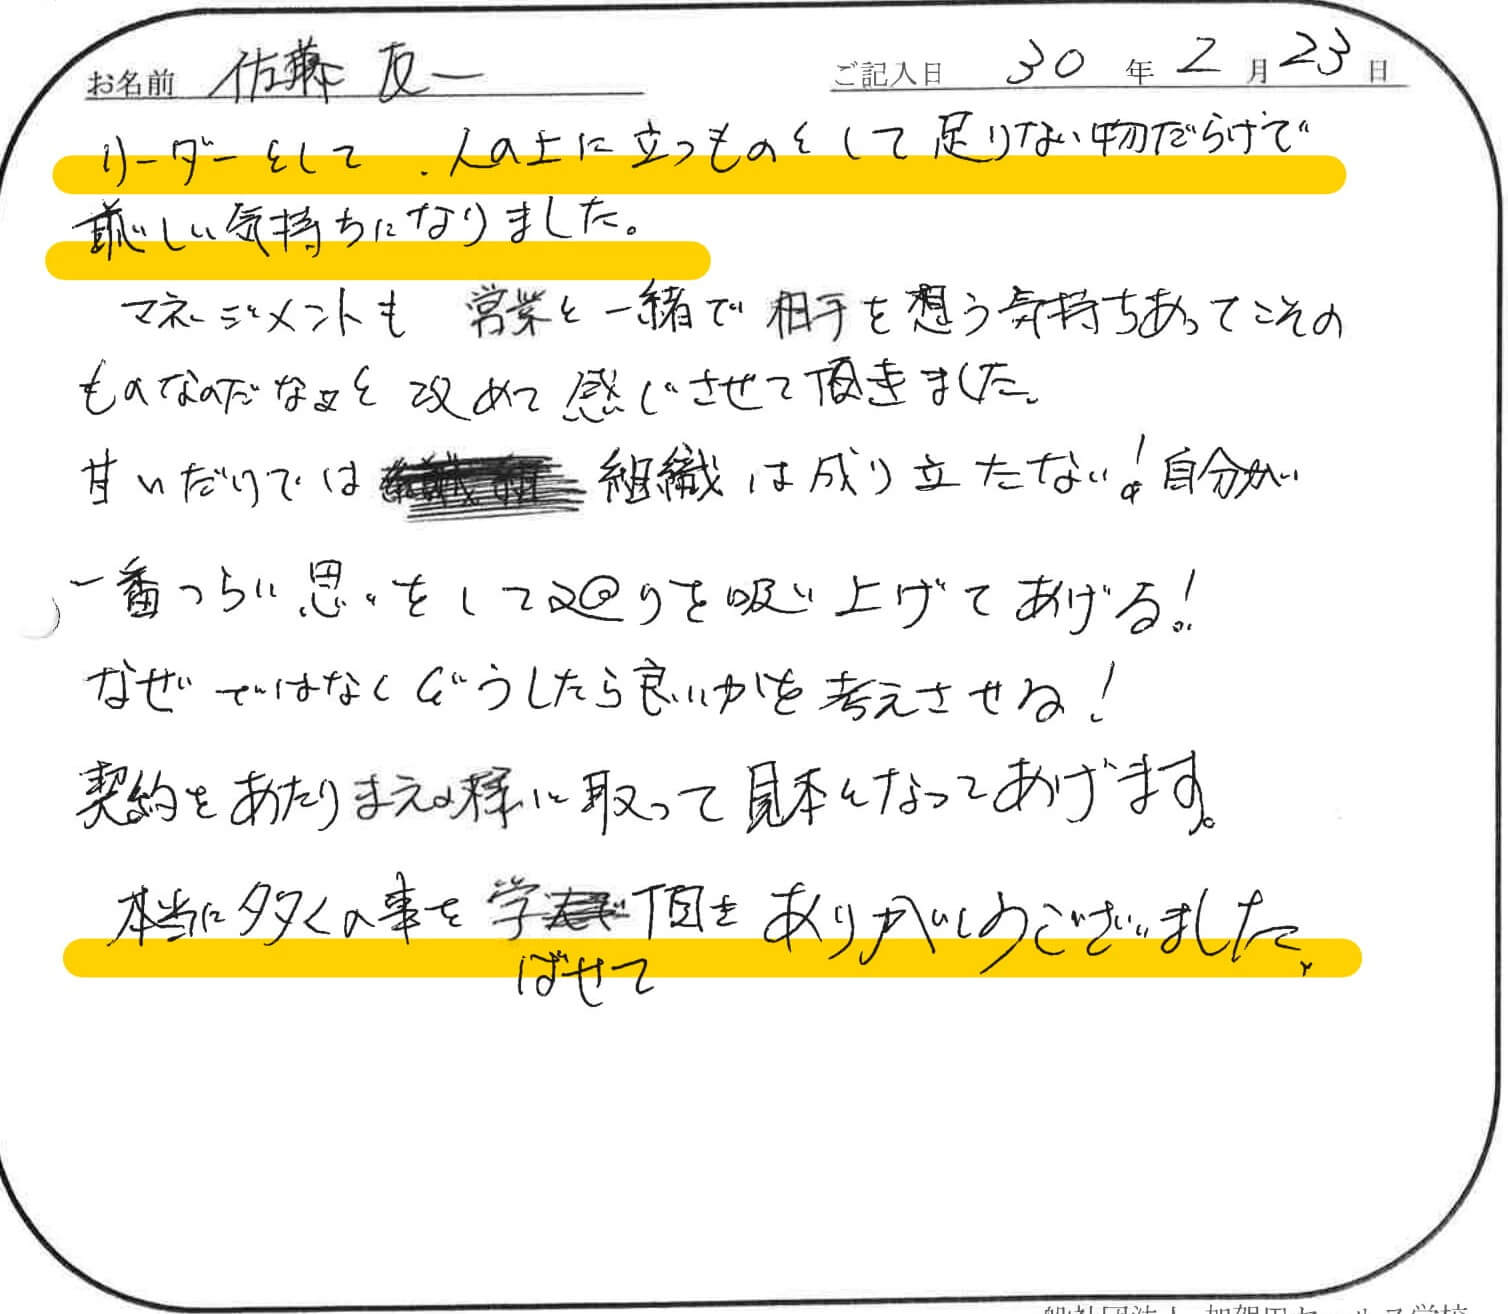 お名前 佐藤 友一 ご記入日 30年2月23日
リーダーとして、人の上に立つものとして足りない物だらけで
厳しい気持ちになりました。
マネージメントも 営業と一緒で相手を想う気持ちあってこその
ものなのだなぁと改めて感じさせて頂きました。
甘いだけでは 組織は成り立たない！自分が
一番つらい思いをして周りを吸い上げてあげる！
なぜではなくどうしたら良いかを考えさせる！
契約をあたりまえの様に取って見本となってあげます。
本当に多くの事を学 頂き ありがとうございました。
ばせて